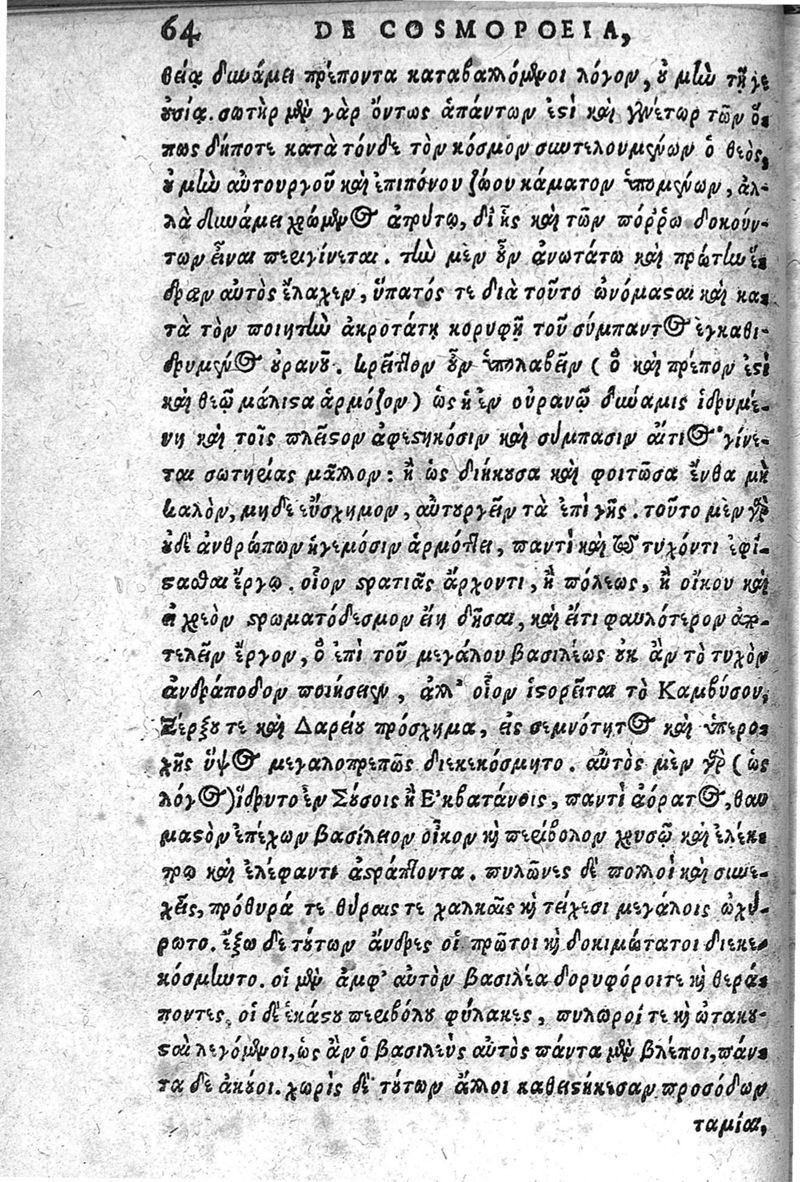 64 DE COSMOPOEIA,
θείᾳ δυνάμει πρέποντα καταβαλλόμενοι λόγον, οὐ μὴν τῇ γε
οὐσίᾳ. σωτὴρ μὲν γὰρ ὄντως ἁπάντων ἐστὶ καὶ γενέτωρ τῶν ὁ-
πως δήποτε κατὰ τόνδε τὸν κόσμον συντελουμένων ὁ θεὸς,
οὐ μὴν αὐτουργοῦ καὶ ἐπιπόνου ζώου κάματον ὑπομένων, ἀλ-
λὰ δυνάμει χρώμενος ἀτρύτῳ, δι' ἧς καὶ τῶν πόῤῥω δοκούν-
των εἶναι περιγίνεται. τὴν μὲν οὖν ἀνωτάτω καὶ πρώτην ἕ-
δραν αὐτὸς ἔλαχεν, ὕπατός τε διὰ τοῦτο ὠνόμασαι καὶ κα-
τὰ τὸν ποιητὴν ἀκροτάτῃ κορυφῇ τοῦ σύμπαντος ἐγκαθι-
δρυμένος οὐρανοῦ. κρεῖττον οὖν ὑπολαβεῖν (ὃ καὶ πρέπον ἐστὶ
καὶ θεῷ μάλιστα ἁρμόζον) ὡς ἡ ἐν οὐρανῷ δύναμις ἱδρυμέ-
νη καὶ τοῖς πλεῖστον ἀφεστηκόσιν καὶ σύμπασιν αἴτιος γίνε-
ται σωτηρίας μᾶλλον: ἢ ὡς διήκουσα καὶ φοιτῶσα ἔνθα μὴ
καλὸν, μηδὲ εὔσχημον, αὐτουργεῖν τὰ ἐπὶ γῆς. τοῦτο μὲν γὰρ
οὐδὲ ἀνθρώπων ἡγεμόσιν ἁρμόττει, παντὶ καὶ τῷ τυχόντι ἐφί-
στασθαι ἔργῳ. οἷον στρατιᾶς ἄρχοντι, ἢ πόλεως, ἢ οἴκου καὶ
εἰ χρεὸν στρωματόδεσμον εἴη δῆσαι, καὶ εἴτι φαυλότερον ἀπο-
τελεῖν ἔργον, ὃ ἐπὶ τοῦ μεγάλου βασιλέως οὐκ ἂν τὸ τυχὸν
ἀνδράποδον ποιήσειεν, ἀλλ' οἷον ἱστορεῖται τὸ Καμβύσου,
Ξέρξου τε καὶ Δαρείου πρόσχημα, εἰς σεμνότητος καὶ ὑπερο-
χῆς ὕψος μεγαλοπρεπῶς διεκεκόσμητο. αὐτὸς μὲν γὰρ (ὡς
λόγος) ἵδρυτο ἐν Σούσοις ἢ Ἐκβατάνοις, παντὶ ἀόρατος, θαυ
μαστὸν ἐπέχων βασίλειον οἶκον καὶ περίβολον χρυσῷ καὶ ἠλέκ-
τρῳ καὶ ἐλέφαντι ἀστράπτοντα. πυλῶνες δὲ πολλοὶ καὶ συνε-
χεῖς, πρόθυρά τε θύραις τε χαλκαῖς καὶ τείχεσι μεγάλοις ὠχύ-
ρωτο. ἔξω δὲ τούτων ἄνδρες οἱ πρῶτοι καὶ δοκιμώτατοι διεκε-
κόσμηντο. οἱ μὲν ἀμφ' αὐτὸν βασιλέα δορυφόροι τε καὶ θερά-
ποντες, οἱ δὲ ἑκάστου περιβόλου φύλακες, πυλωροί τε καὶ ὠτακου-
σταὶ λεγόμενοι, ὡς ἂν ὁ βασιλεὺς αὐτὸς πάντα μὲν βλέποι, πάν-
τα δὲ ἀκούοι. χωρὶς δὲ τούτων ἄλλοι καθειστήκεσαν προσόδων
ταμίαι,